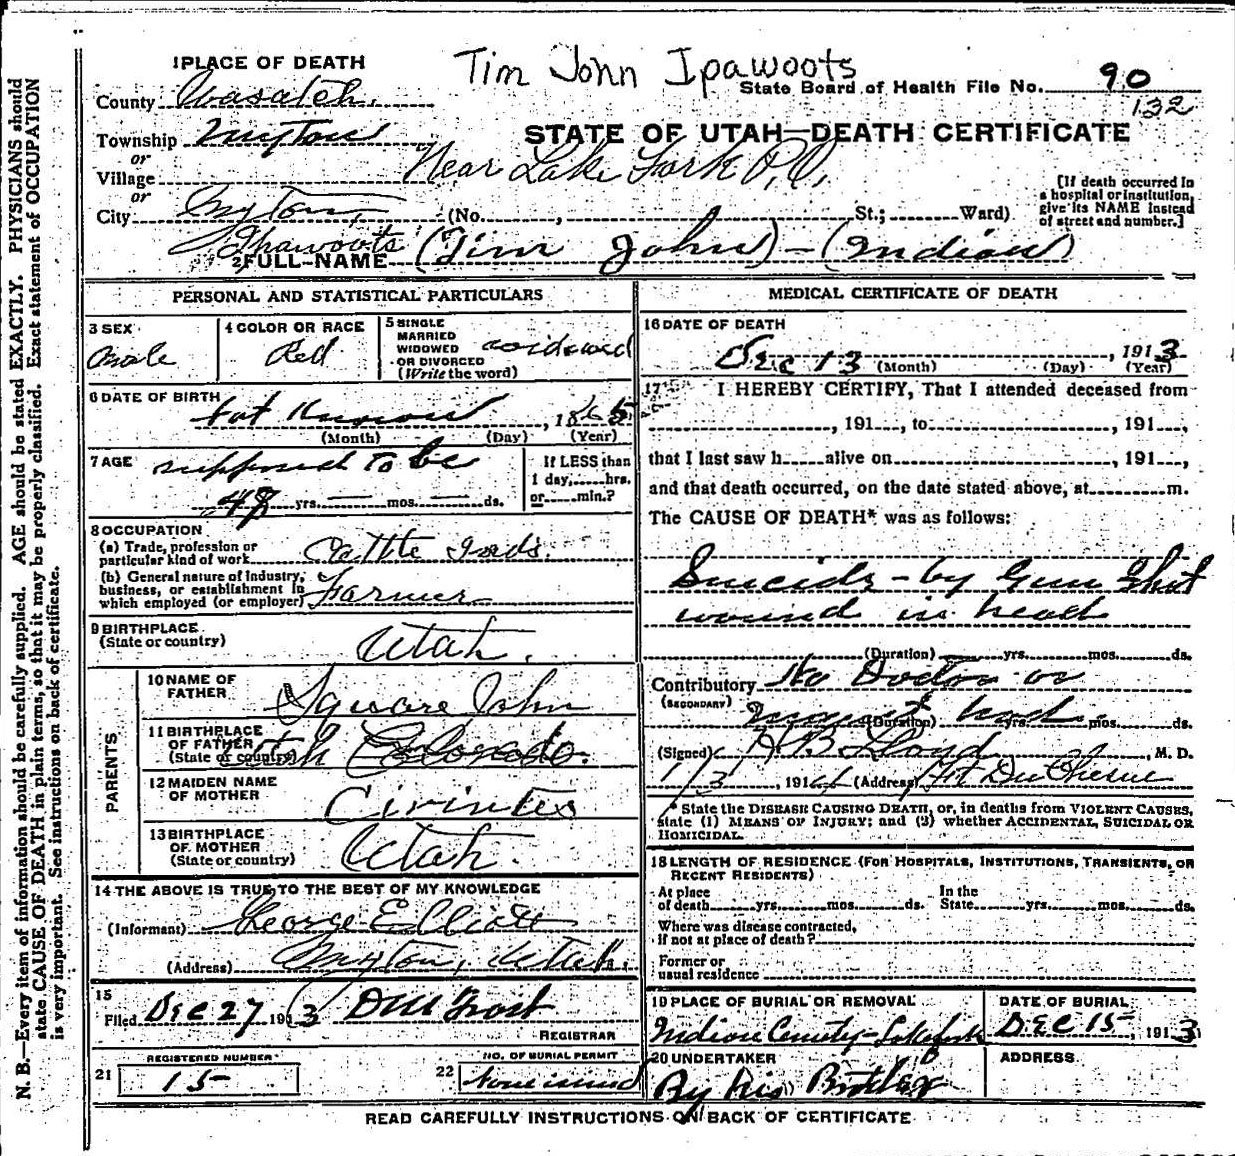 Tim John Ipawoots
1 PLACE OF DEATH
State Board of Health File No. 90
132
County Wasatch
Township Myton
STATE OF UTAH—DEATH CERTIFICATE
or
Village Near Lake Fork P.O.
or
City Myton, (No. , St.; Ward)
[If death occurred in a hospital or institution, give its NAME instead of street and number.]
Ipawoots
2 FULL NAME (Tim John) - (Indian)
PERSONAL AND STATISTICAL PARTICULARS
3 SEX
male
4 COLOR OR RACE
Red
5 SINGLE
MARRIED
WIDOWED
OR DIVORCED
(Write the word)
widowed
6 DATE OF BIRTH
not Known, 1865
(Month) (Day) (Year)
7 AGE
supposed to be
48 yrs. — mos. — ds.
If LESS than
1 day, hrs.
or min.?
8 OCCUPATION
(a) Trade, profession or
particular kind of work Cattle
(b) General nature of industry,
business, or establishment in
which employed (or employer) Farmer
9 BIRTHPLACE
(State or country)
Utah.
PARENTS
10 NAME OF
FATHER
Square John
11 BIRTHPLACE
OF FATHER
(State or country) Utah Colorado.
12 MAIDEN NAME
OF MOTHER
13 BIRTHPLACE
OF MOTHER
(State or country)
Utah.
14 THE ABOVE IS TRUE TO THE BEST OF MY KNOWLEDGE
(Informant) George Elliott
(Address) Myton, Utah.
15
Filed Dec 27 1913 DM Frost
REGISTRAR
REGISTERED NUMBER
21 15
NO. OF BURIAL PERMIT
22 None issued
MEDICAL CERTIFICATE OF DEATH
16 DATE OF DEATH
Dec 13, 1913
(Month) (Day) (Year)
17 I HEREBY CERTIFY, That I attended deceased from
, 191 , to , 191 ,
that I last saw h alive on , 191 ,
and that death occurred, on the date stated above, at m.
The CAUSE OF DEATH* was as follows:
Suicide - by Gun Shot
wound in head
(Duration) yrs. mos. ds.
Contributory No Doctor or
(SECONDARY)
inquest had
(Duration) yrs. mos. ds.
(Signed) H B Lloyd, M. D.
1/3, 1914 (Address) Ft Duchesne
* State the DISEASE CAUSING DEATH, or, in deaths from VIOLENT CAUSES,
state (1) MEANS OF INJURY; and (2) whether ACCIDENTAL, SUICIDAL OR
HOMICIDAL.
18 LENGTH OF RESIDENCE (FOR HOSPITALS, INSTITUTIONS, TRANSIENTS, OR
RECENT RESIDENTS)
At place
of death yrs. mos. ds.
In the
State yrs. mos. ds.
Where was disease contracted,
if not at place of death?
Former or
usual residence
19 PLACE OF BURIAL OR REMOVAL
Indian Cemetery - Lakefork
DATE OF BURIAL
Dec 15, 1913
20 UNDERTAKER
By his Brother
ADDRESS
READ CAREFULLY INSTRUCTIONS ON BACK OF CERTIFICATE
N. B.—Every item of information should be carefully supplied. AGE should be stated EXACTLY. PHYSICIANS should
state CAUSE OF DEATH in plain terms, so that it may be properly classified. Exact statement of OCCUPATION
is very important. See instructions on back of certificate.